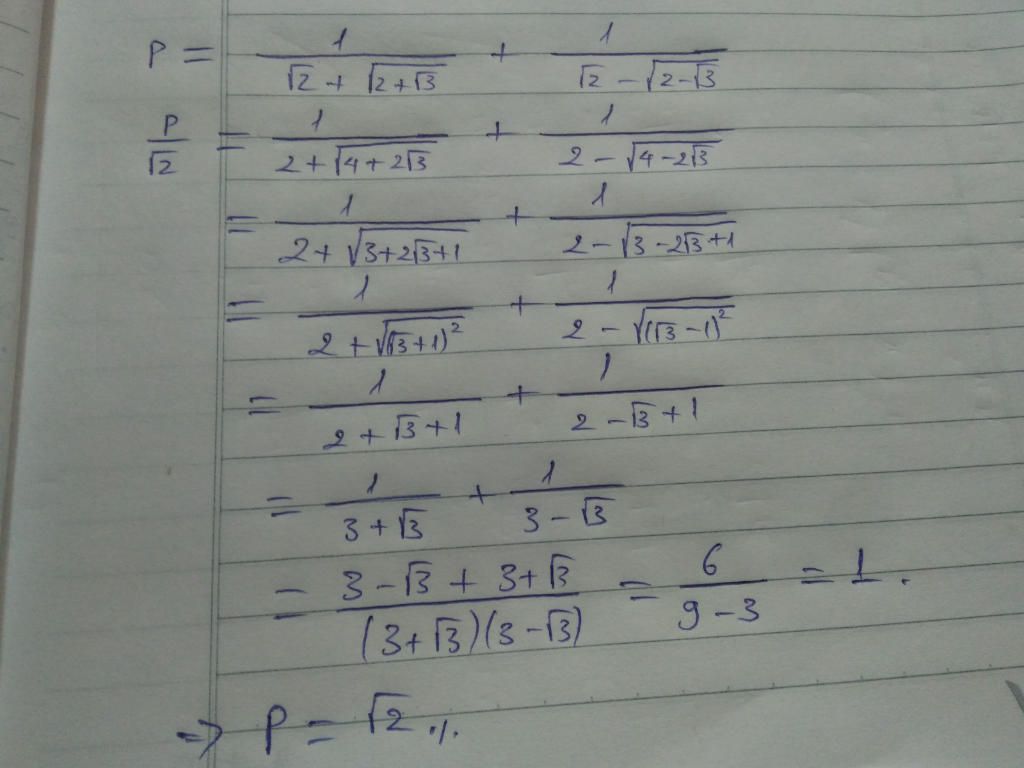 P = 1/(√2 + √(2+√3)) + 1/(√2 − √(2−√3))
P/√2 = 1/(2 + √(4+2√3)) + 1/(2 − √(4−2√3))
= 1/(2 + √(3+2√3+1)) + 1/(2 − √(3−2√3+1))
= 1/(2 + √((√3+1)²)) + 1/(2 − √((√3−1)²))
= 1/(2 + √3 + 1) + 1/(2 − √3 + 1)
= 1/(3 + √3) + 1/(3 − √3)
= (3 − √3 + 3 + √3)/((3+√3)(3−√3)) = 6/(9−3) = 1.
⇒ P = √2 ./.